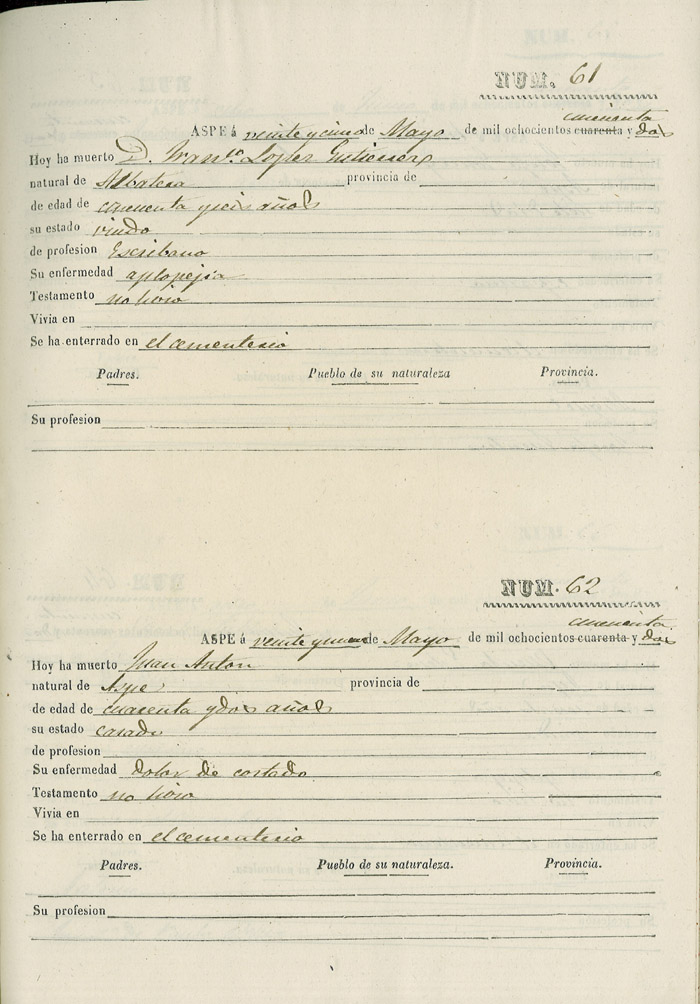 NUM. 61
cincuenta
ASPE á veinte y cinco de Mayo de mil ochocientos cuarenta y dos
Hoy ha muerto D. Fran.co Lopes Gutierres
natural de Albatera provincia de
de edad de cincuenta y seis años
su estado viudo
de profesion Escribano
Su enfermedad aplopejia
Testamento no hiso
Vivia en
Se ha enterrado en el cementerio
Padres. Pueblo de su naturaleza Provincia.
Su profesion
NUM. 62
cincuenta
ASPE á veinte y de Mayo de mil ochocientos cuarenta y dos
Hoy ha muerto Juan Anton
natural de Aspe provincia de
de edad de cuarenta y dos años
su estado casado
de profesion
Su enfermedad dolor de costado
Testamento no hiso
Vivia en
Se ha enterrado en el cementerio
Padres. Pueblo de su naturaleza. Provincia.
Su profesion